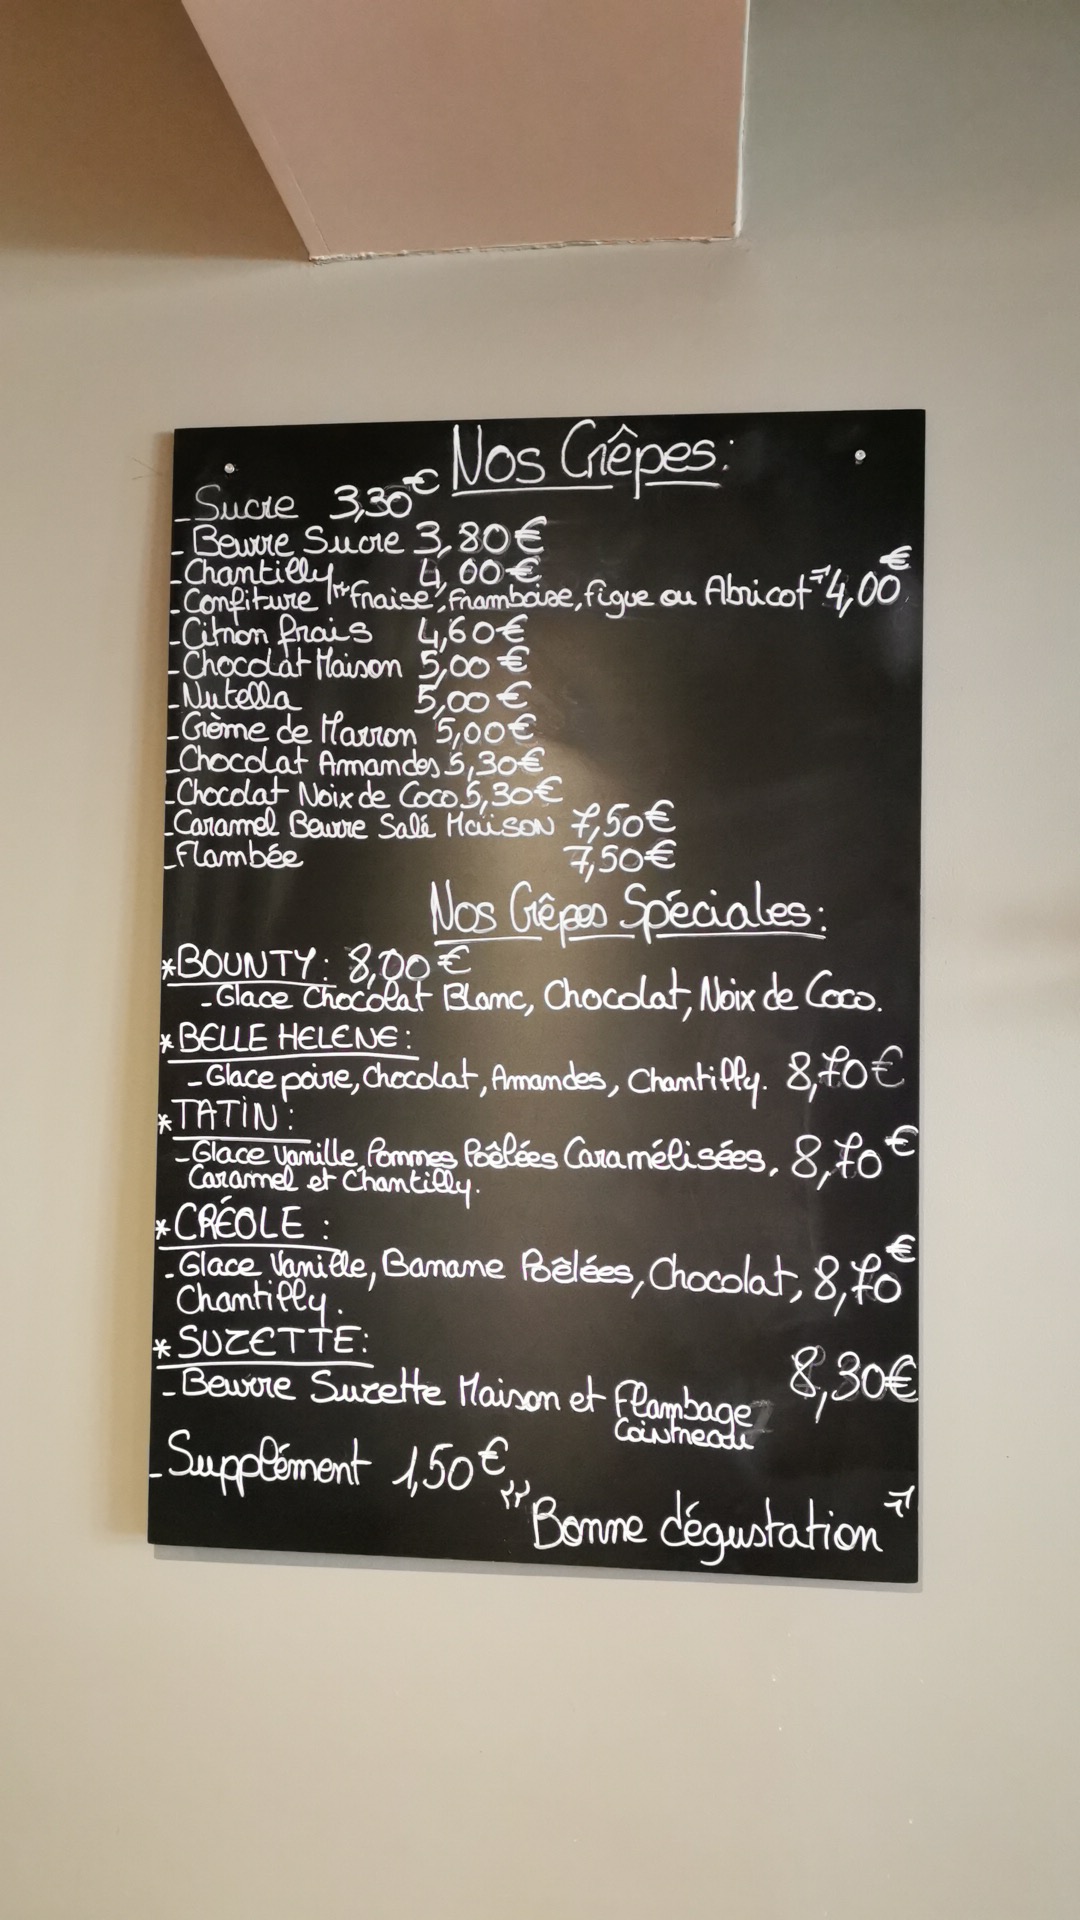 Nos Crêpes:
- Sucre 3,30€
- Beurre Sucre 3,80€
- Chantilly 4,00€
- Confiture "fraise, framboise, figue ou Abricot" 4,00€
- Citron frais 4,60€
- Chocolat Maison 5,00€
- Nutella 5,00€
- Crème de Marron 5,00€
- Chocolat Amandes 5,30€
- Chocolat Noix de Coco 5,30€
- Caramel Beurre Salé Maison 7,50€
- Flambée 7,50€
Nos Crêpes Spéciales:
* BOUNTY: 8,00€
- Glace Chocolat Blanc, Chocolat, Noix de Coco.
* BELLE HELENE:
- Glace poire, Chocolat, Amandes, Chantilly. 8,70€
* TATIN:
- Glace Vanille, Pommes Poêlées Caramélisées, 8,70€
Caramel et Chantilly.
* CRÉOLE :
- Glace Vanille, Banane Poêlées, Chocolat, 8,70€
Chantilly.
* SUZETTE:
- Beurre Suzette Maison et Flambage 8,30€
Cointreau
- Supplément 1,50€
"Bonne dégustation"